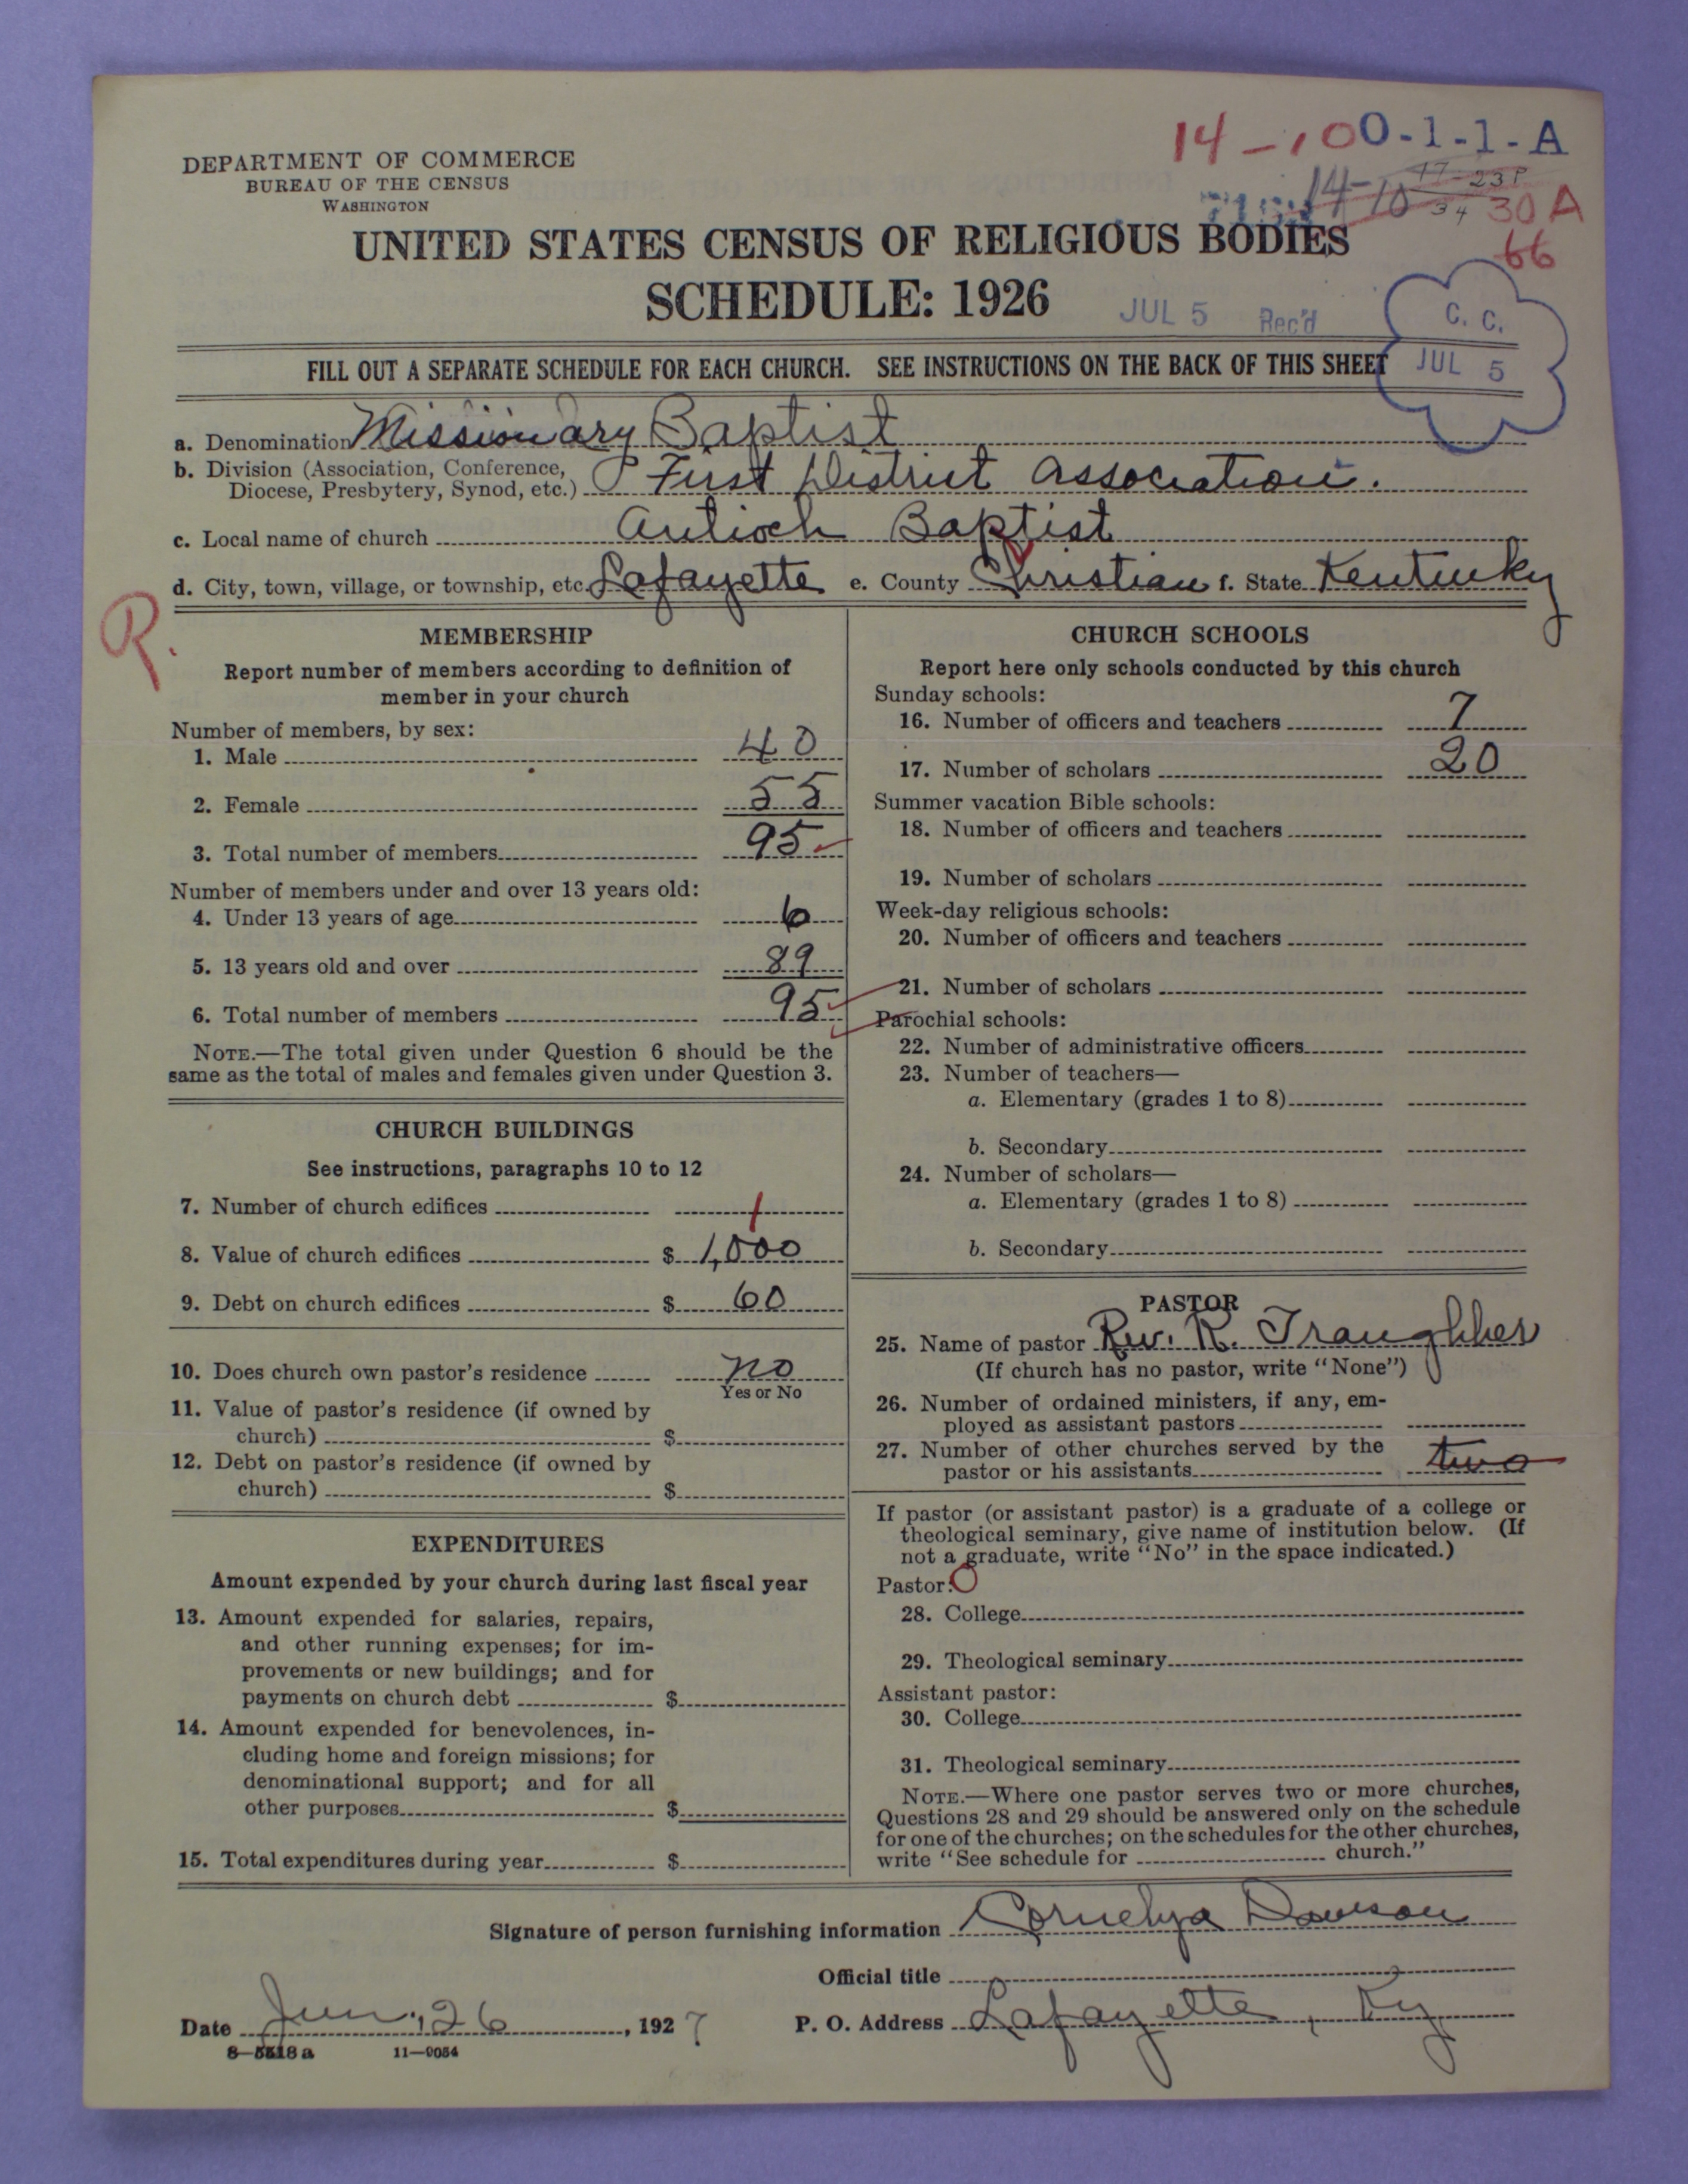 14-100-1-1-A
DEPARTMENT OF COMMERCE
BUREAU OF THE CENSUS
WASHINGTON
14-10
17-23P
34
30 A
66
UNITED STATES CENSUS OF RELIGIOUS BODIES
SCHEDULE: 1926
JUL 5 Rec'd
C. C.
JUL 5
FILL OUT A SEPARATE SCHEDULE FOR EACH CHURCH. SEE INSTRUCTIONS ON THE BACK OF THIS SHEET
a. Denomination Missionary Baptist
b. Division (Association, Conference, Diocese, Presbytery, Synod, etc.) First District Association.
c. Local name of church Antioch Baptist
d. City, town, village, or township, etc. Lafayette e. County Christian f. State Kentucky
R.
MEMBERSHIP
Report number of members according to definition of
member in your church
Number of members, by sex:
1. Male 40
2. Female 55
3. Total number of members 95
Number of members under and over 13 years old:
4. Under 13 years of age 6
5. 13 years old and over 89
6. Total number of members 95
NOTE.—The total given under Question 6 should be the
same as the total of males and females given under Question 3.
CHURCH BUILDINGS
See instructions, paragraphs 10 to 12
7. Number of church edifices 1
8. Value of church edifices $ 1,000
9. Debt on church edifices $ 60
10. Does church own pastor's residence no
Yes or No
11. Value of pastor's residence (if owned by
church) $
12. Debt on pastor's residence (if owned by
church) $
EXPENDITURES
Amount expended by your church during last fiscal year
13. Amount expended for salaries, repairs,
and other running expenses; for im-
provements or new buildings; and for
payments on church debt $
14. Amount expended for benevolences, in-
cluding home and foreign missions; for
denominational support; and for all
other purposes $
15. Total expenditures during year $
CHURCH SCHOOLS
Report here only schools conducted by this church
Sunday schools:
16. Number of officers and teachers 7
17. Number of scholars 20
Summer vacation Bible schools:
18. Number of officers and teachers
19. Number of scholars
Week-day religious schools:
20. Number of officers and teachers
21. Number of scholars
Parochial schools:
22. Number of administrative officers
23. Number of teachers—
a. Elementary (grades 1 to 8)
b. Secondary
24. Number of scholars—
a. Elementary (grades 1 to 8)
b. Secondary
PASTOR
25. Name of pastor Rev. R. Traughber
(If church has no pastor, write "None")
26. Number of ordained ministers, if any, em-
ployed as assistant pastors
27. Number of other churches served by the
pastor or his assistants two
If pastor (or assistant pastor) is a graduate of a college or
theological seminary, give name of institution below. (If
not a graduate, write "No" in the space indicated.)
Pastor: O
28. College
29. Theological seminary
Assistant pastor:
30. College
31. Theological seminary
NOTE.—Where one pastor serves two or more churches,
Questions 28 and 29 should be answered only on the schedule
for one of the churches; on the schedules for the other churches,
write "See schedule for church."
Signature of person furnishing information Cornelya Dawson
Official title
Date Jun. 26, 1927 P. O. Address Lafayette, Ky
8—5518a 11—9054